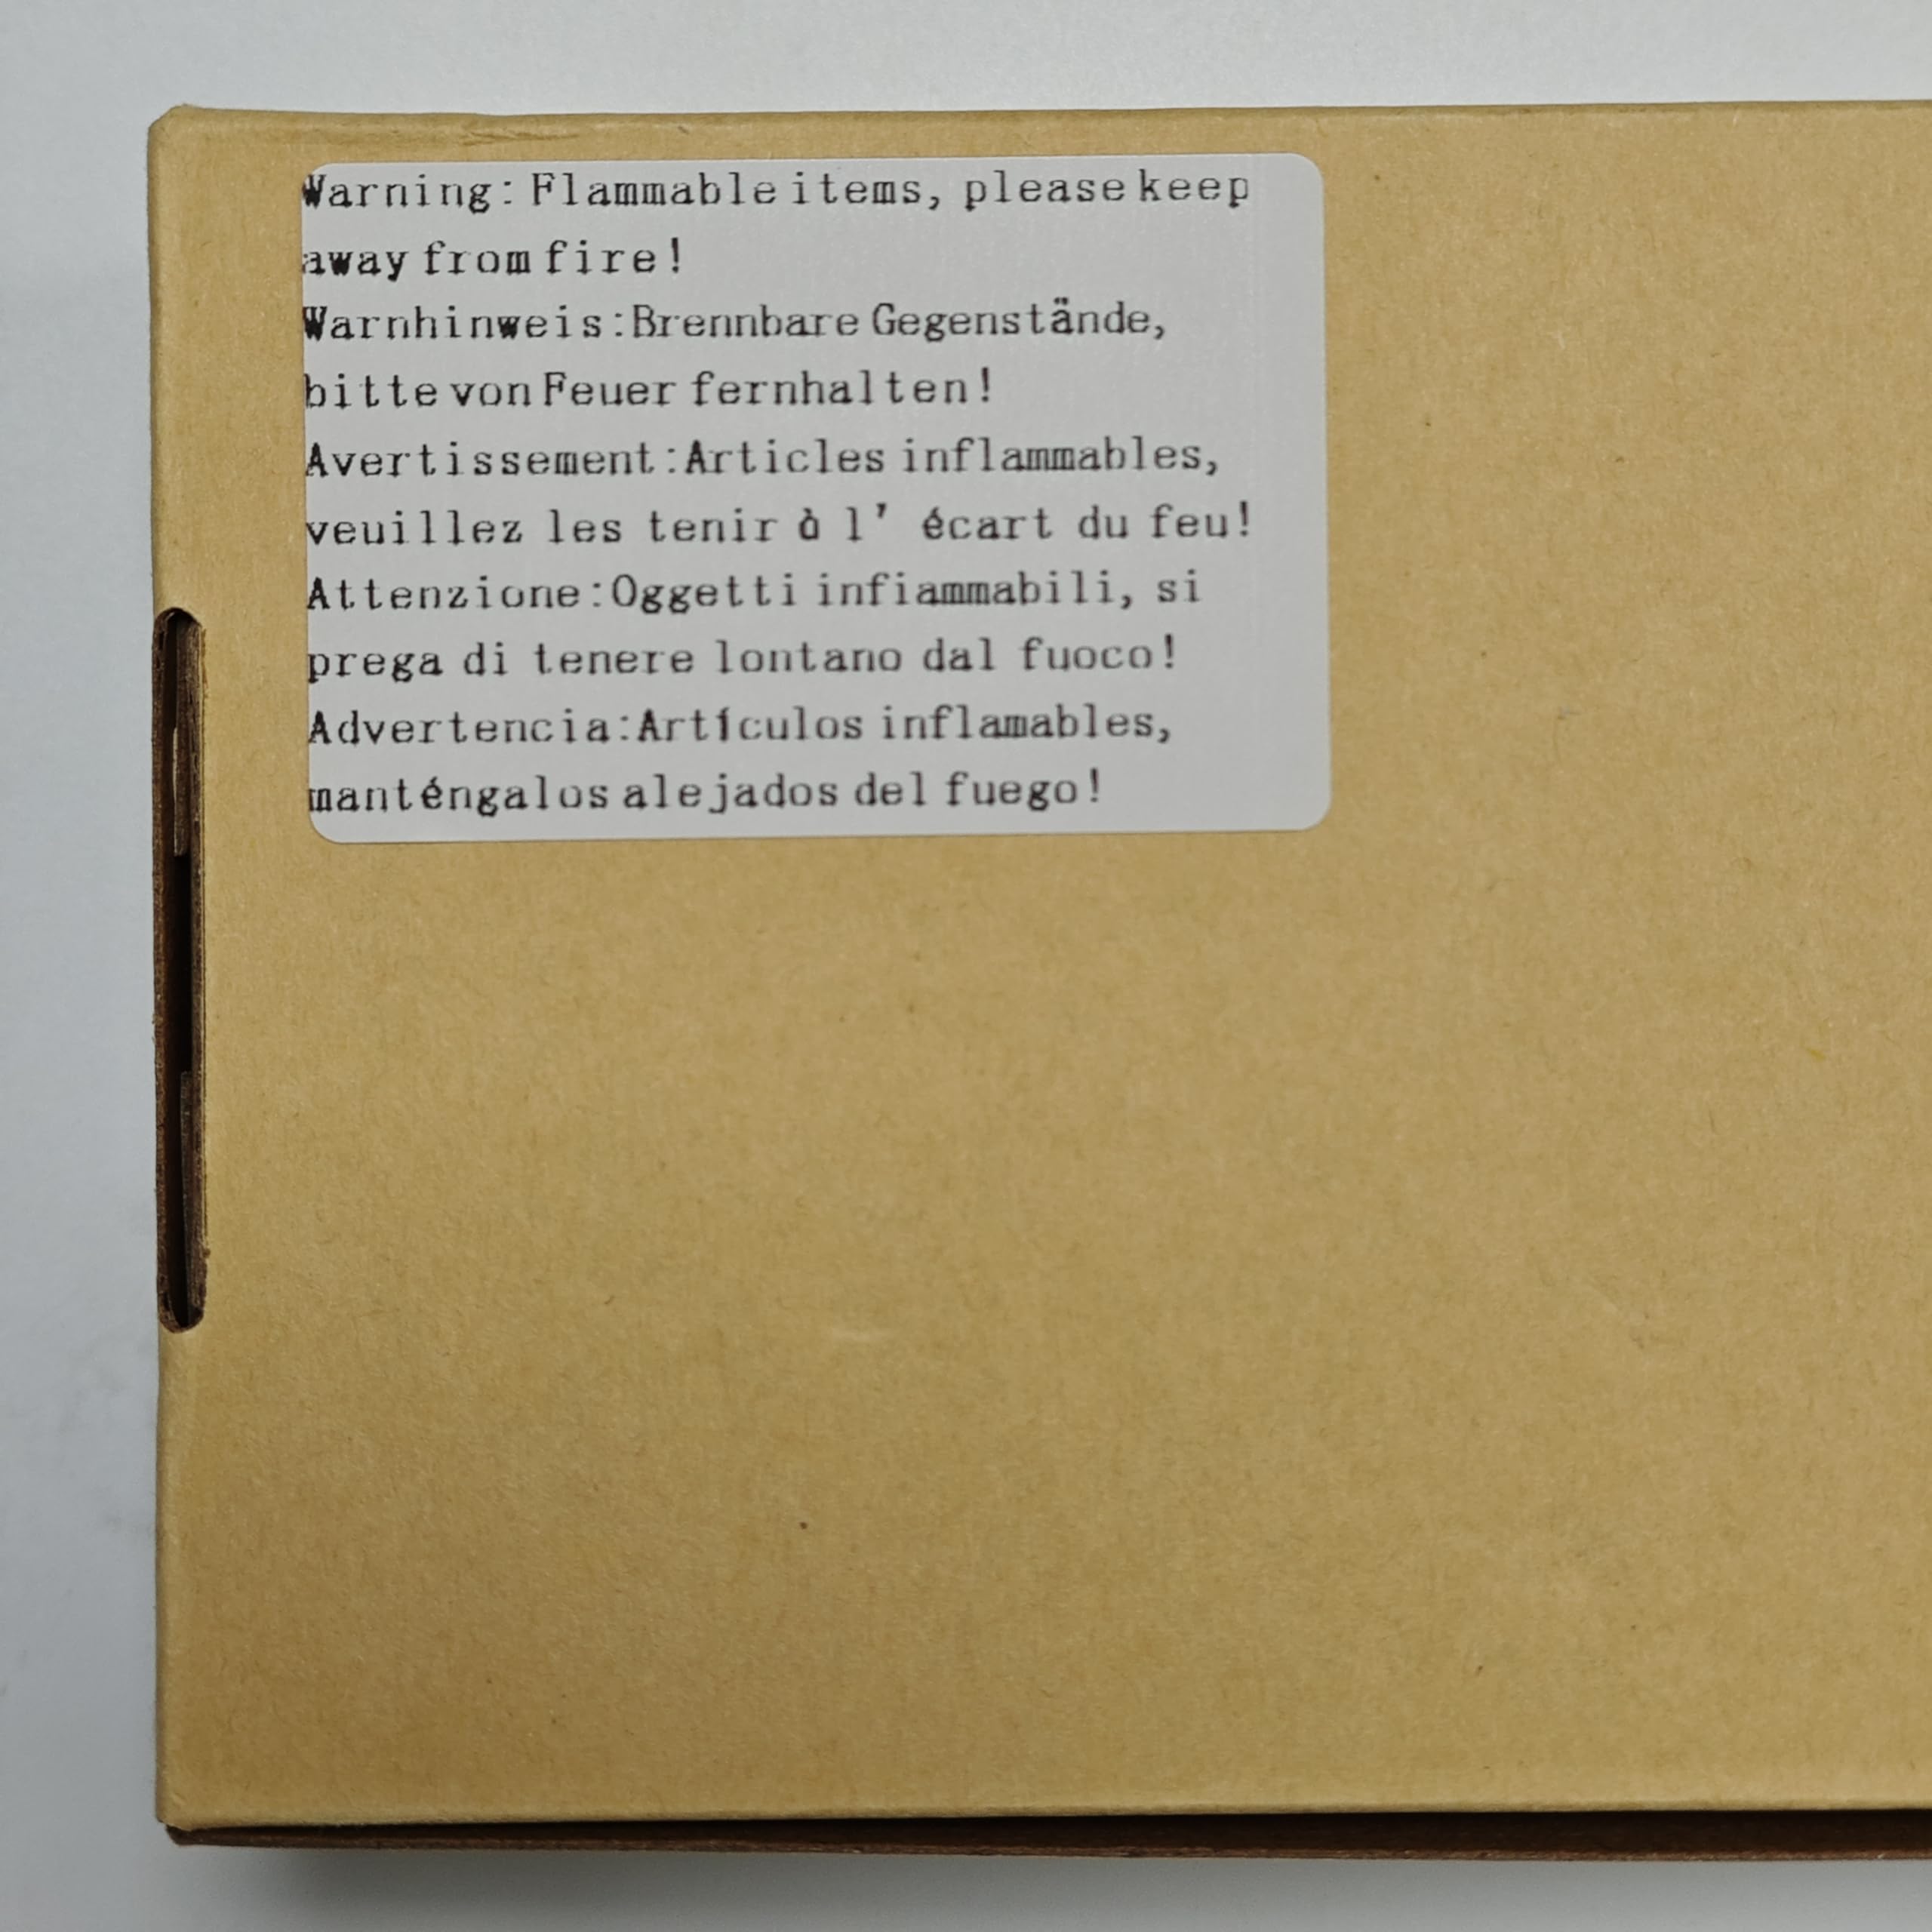 Warning: Flammable items, please keep
away from fire!
Warnhinweis:Brennbare Gegenstände,
bitte von Feuer fernhalten!
Avertissement:Articles inflammables,
veuillez les tenir à l' écart du feu!
Attenzione:Oggetti infiammabili, si
prega di tenere lontano dal fuoco!
Advertencia:Artículos inflamables,
manténgalos alejados del fuego!